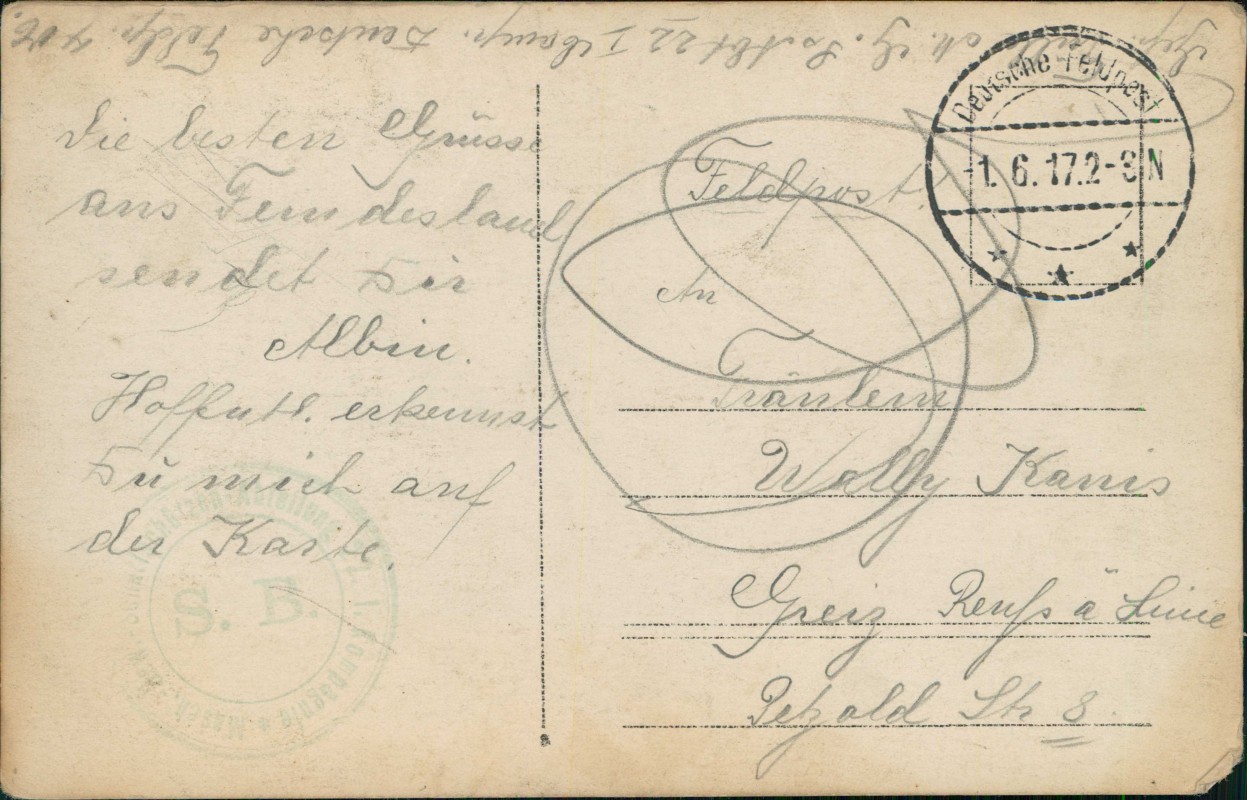 Deutsche Feldp. 406.
Die besten Grüsse
aus Feindesland
sendet Dir
Albin.
Hoffentl. erkennst
Du mich auf
der Karte.
Feldpost!
An
Fräulein
Wally Kanis
Greiz Reuß ä Linie
Petzold Str 8.
Deutsche Feldpost
-1. 6. 17. 2-8 N
S. B.